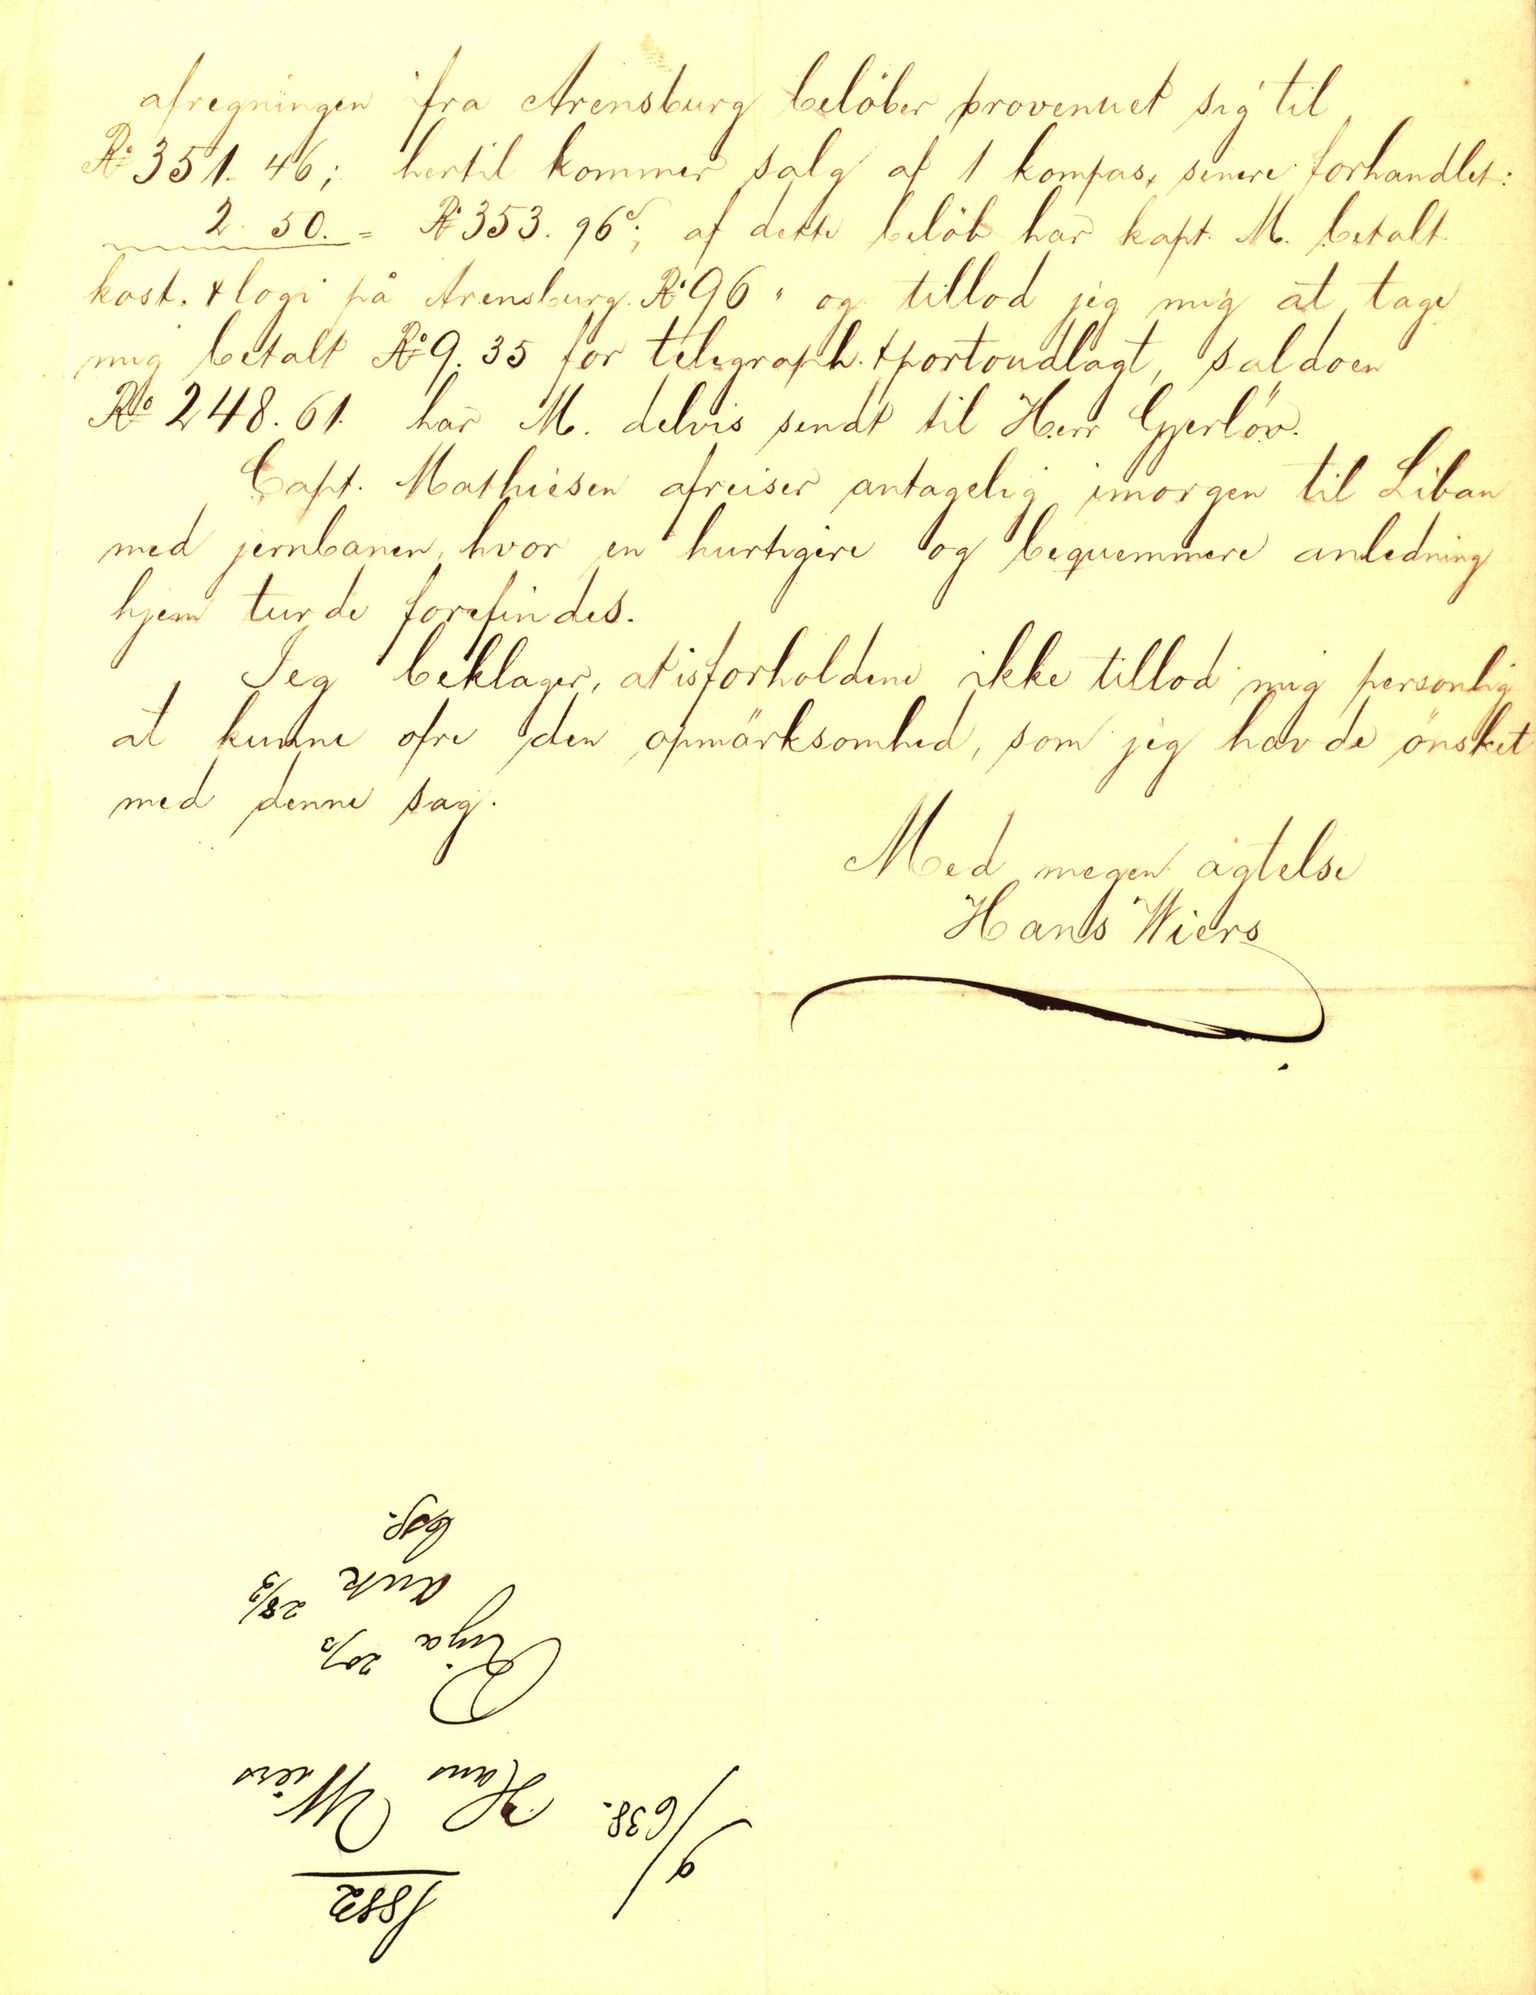 afregningen fra Arensburg belöber provenuet sig til
Ro 351. 46; hertil kommer salg af 1 kompas, senere forhandlet:
2. 50. = Ro 353. 96c; af dette belöb har kapt. M. betalt
kost. & logi på Arensburg. Ro 96 " og tillod jeg mig at tage
mig betalt Ro 9. 35 for telegraph. & portoudlagt, saldoen
Ro 248. 61. har M. delvis sendt til Herr Gjerlöv.
Capt. Mathiesen afreiser antagelig imorgen til Liban
med jernbanen, hvor en hurtigere og bequemmere anledning
hjem turde forefindes.
Jeg beklager, at isforholdene ikke tillod mig personlig
at kunne ofre den opmärksomhed, som jeg havde önsket
med denne sag.
Med megen agtelse
Hans Wiers
1882
9/638.
Hans Wiers
Riga 20/3
ank 28/3